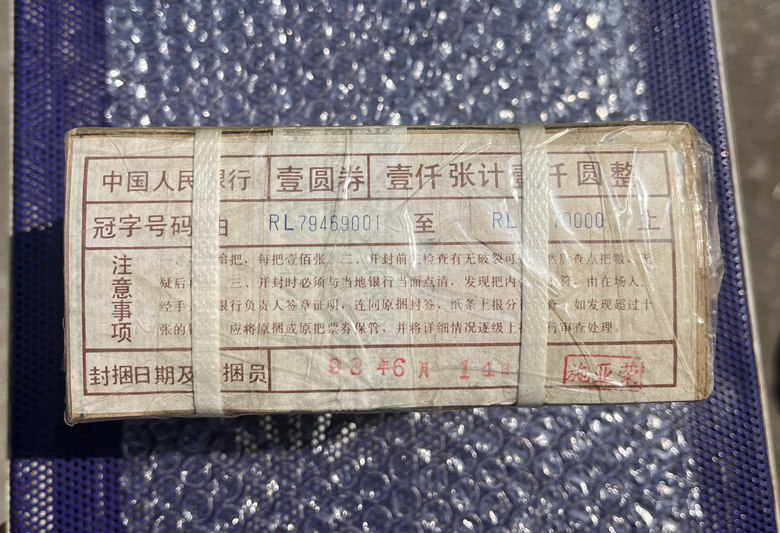 中国人民银行 壹圆券 壹仟张计壹仟圆整
冠字号码 由 RL79469001 至 RL 70000 止
注意事项
一、 拾把,每把壹佰张。二、开封前 检查有无破裂可 然后查点把数,无
疑后 三、开封时必须与当地银行当面点清,发现把内 由在场人、
经手 银行负责人签章证明,连同原捆封签,纸条上报分行 如发现超过十
张的 应将原捆或原把票券保管,并将详细情况逐级上 行审查处理。
封捆日期及 捆员 93年6月14日 施亚荣